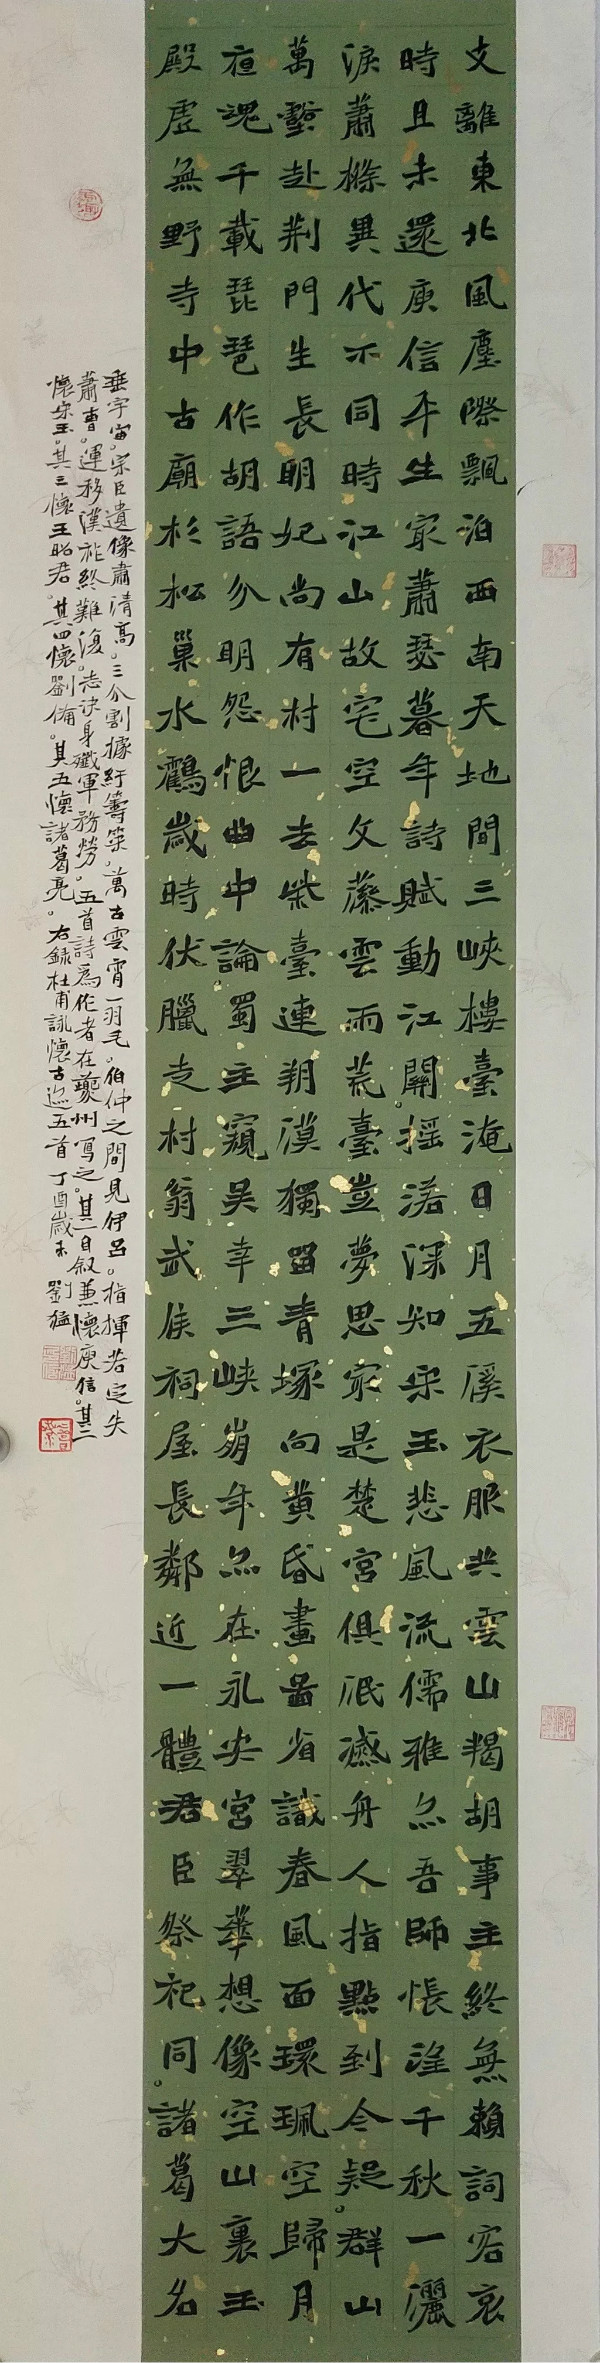 支離東北風塵際飄泊西南天地間三峽樓臺淹日月五溪衣服共雲山羯胡事主終無賴詞客哀
時且未還庾信平生最蕭瑟暮年詩賦動江關。搖落深知宋玉悲風流儒雅亦吾師悵望千秋一灑
淚蕭條異代不同時江山故宅空文藻雲雨荒臺豈夢思最是楚宮俱泯滅舟人指點到今疑。群山
萬壑赴荆門生長明妃尚有村一去紫臺連朔漠獨留青塚向黃昏畫圖省識春風面環珮空歸月
夜魂千載琵琶作胡語分明怨恨曲中論。蜀主窺吳幸三峽崩年亦在永安宮翠華想像空山裏玉
殿虛無野寺中古廟杉松巢水鸖歲時伏臘走村翁武侯祠屋長鄰近一體君臣祭祀同。諸葛大名
垂宇宙。宗臣遺像肅清高。三分割據紆籌策。萬古雲霄一羽毛。伯仲之間見伊呂。指揮若定失
蕭曹。運移漢祚終難復。志決身殲軍務勞。五首詩為作者在夔州寫之。其一自叙兼懷庾信。其二
懷宋玉。其三懷王昭君。其四懷劉備。其五懷諸葛亮。右錄杜甫詠懷古迹五首丁酉歲末劉猛